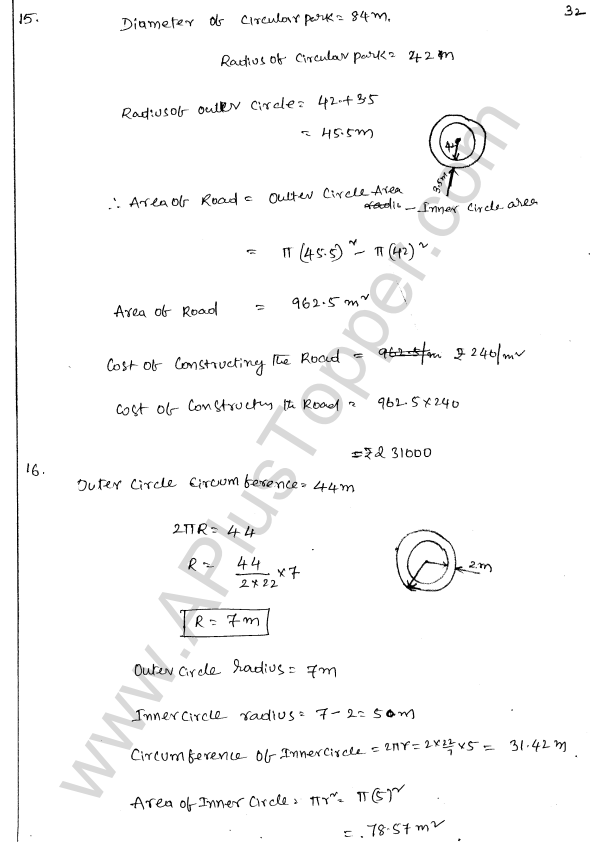 15.
32
Diameter of Circular park = 84m.
Radius of Circular park = 42m
Radius of outer circle = 42+3.5
= 45.5m
42
3.5m
∴ Area of Road = Outter Circle Area - Inner Circle area
= π(45.5)² - π(42)²
Area of Road = 962.5m²
Cost of Constructing the Road = ₹ 240/m²
Cost of Constructy the Road = 962.5×240
= ₹ 231000
16.
Outer Circle Circumference = 44m
2πR = 44
R = 44/2×22 ×7
R = 7m
2m
Outer Circle radius = 7m
Inner circle radius = 7-2 = 5m
Circumference of Inner circle = 2πr = 2×22/7×5 = 31.42m.
Area of Inner Circle, πr² = π(5)²
= .78.57m²
www.APlusTopper.com